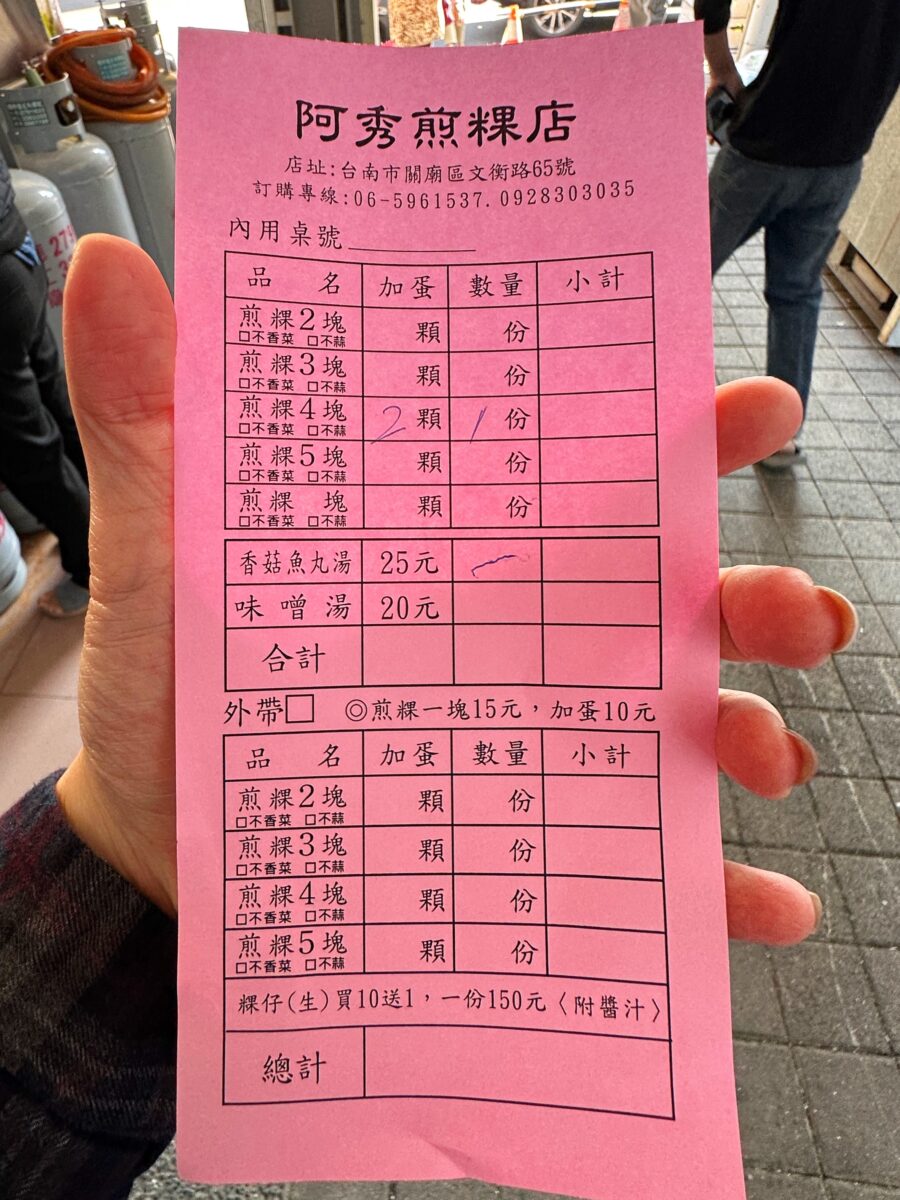 阿秀煎粿店
店址:台南市關廟區文衡路65號
訂購專線:06-5961537. 0928303035
內用桌號
品名 加蛋 數量 小計
煎粿2塊 顆 份
□不香菜 □不蒜
煎粿3塊 顆 份
□不香菜 □不蒜
煎粿4塊 2顆 1份
□不香菜 □不蒜
煎粿5塊 顆 份
□不香菜 □不蒜
煎粿 塊 顆 份
□不香菜 □不蒜
香菇魚丸湯 25元 一
味噌湯 20元
合計
外帶□ ◎煎粿一塊15元,加蛋10元
品名 加蛋 數量 小計
煎粿2塊 顆 份
□不香菜 □不蒜
煎粿3塊 顆 份
□不香菜 □不蒜
煎粿4塊 顆 份
□不香菜 □不蒜
煎粿5塊 顆 份
□不香菜 □不蒜
粿仔(生)買10送1,一份150元〈附醬汁〉
總計